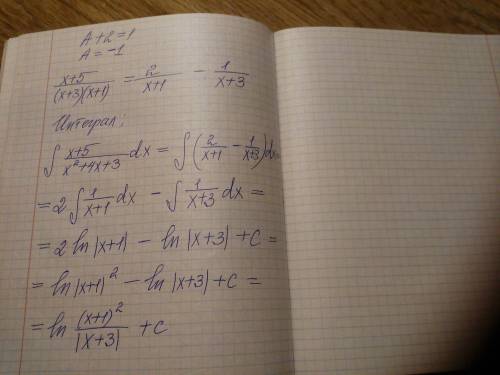 A+2=1
A=-1
(x+5)/((x+3)(x+1)) = 2/(x+1) - 1/(x+3)
Интеграл:
∫ (x+5)/(x²+4x+3) dx = ∫ (2/(x+1) - 1/(x+3)) dx =
= 2 ∫ 1/(x+1) dx - ∫ 1/(x+3) dx =
= 2 ln |x+1| - ln |x+3| + c =
= ln |x+1|² - ln |x+3| + c =
= ln (x+1)²/|x+3| + c